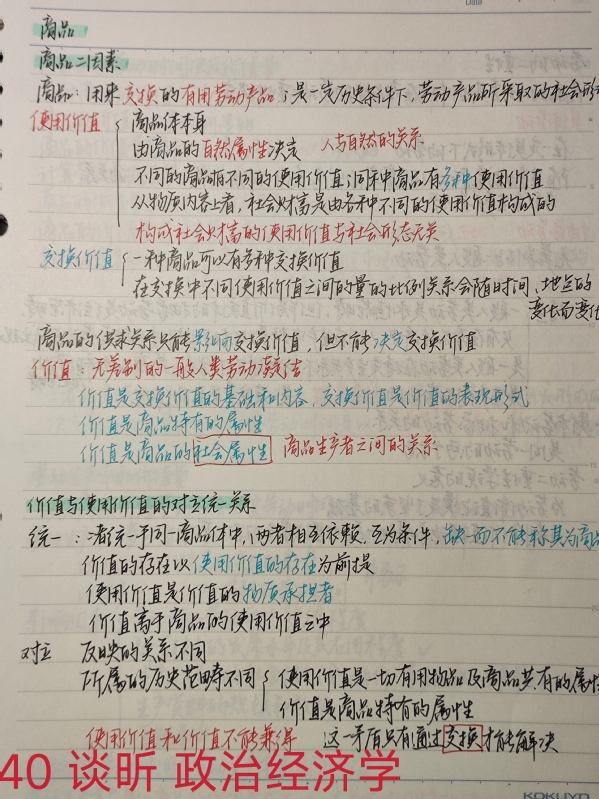 Data
商品
商品二因素
商品:用来交换的有用劳动产品;是一定历史条件下,劳动产品所采取的社会形
使用价值 商品体本身
由商品的自然属性决定 人与自然的关系
不同的商品有不同的使用价值;同种商品有多种使用价值
从物质内容上看,社会财富是由各种不同的使用价值构成的
构成社会财富的使用价值与社会形态无关
交换价值 一种商品可以有多种交换价值
在交换中不同使用价值之间的量的比例关系会随时间、地点的
变化而变化
商品的供求关系只能影响交换价值,但不能决定交换价值
价值:无差别的一般人类劳动凝结
价值是交换价值的基础和内容,交换价值是价值的表现形式
价值是商品特有的属性
价值是商品的社会属性 商品生产者之间的关系
价值与使用价值的对立统一关系
统一:统一于同一商品体中,两者相互依赖,互为条件,缺一而不能称其为商品
价值的存在以使用价值的存在为前提
使用价值是价值的物质承担者
价值寓于商品的使用价值之中
对立 反映的关系不同
所属的历史范畴不同 使用价值是一切有用物品及商品共有的属性
价值是商品特有的属性
使用价值和价值不能兼得 这一矛盾只有通过交换才能解决
40 谈昕 政治经济学
KOKUYO